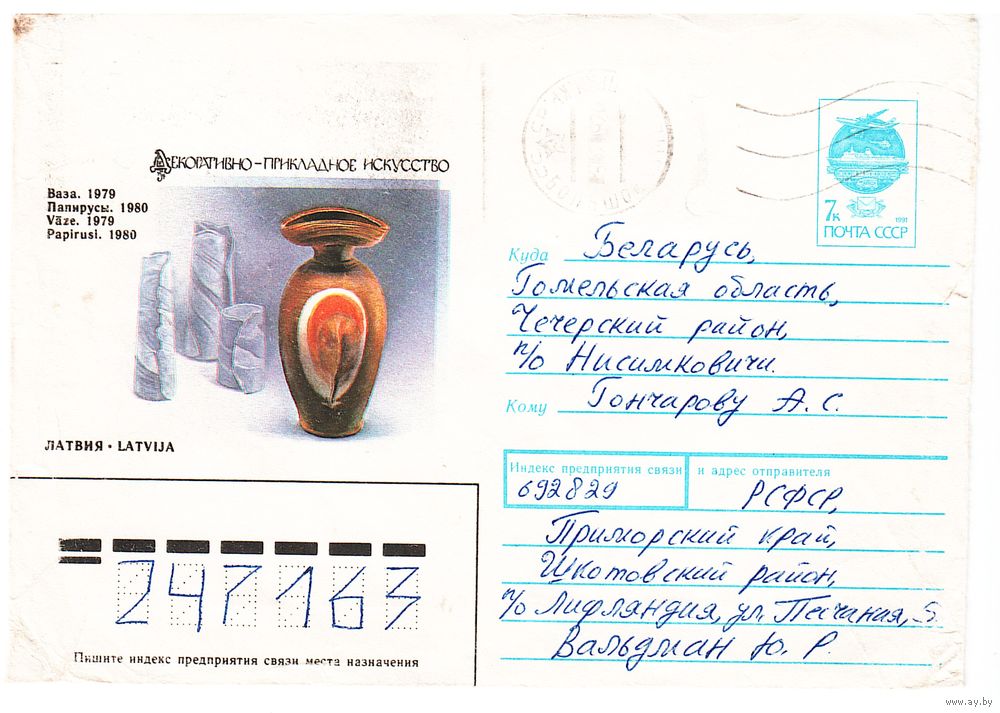 Декоративно-прикладное искусство
Ваза. 1979
Папирусы. 1980
Vāze. 1979
Papirusi. 1980
ЛАТВИЯ • LATVIJA
7к
1991
ПОЧТА СССР
Куда Беларусь,
Гомельская область,
Чечерский район,
п/о Нисимковичи.
Кому Гончарову А. С.
Индекс предприятия связи и адрес отправителя
692829 РСФСР,
Приморский край,
Шкотовский район,
п/о Лифляндия, ул. Песчаная, 5
Вальдман Ю. Р.
247163
Пишите индекс предприятия связи места назначения
www.ay.by